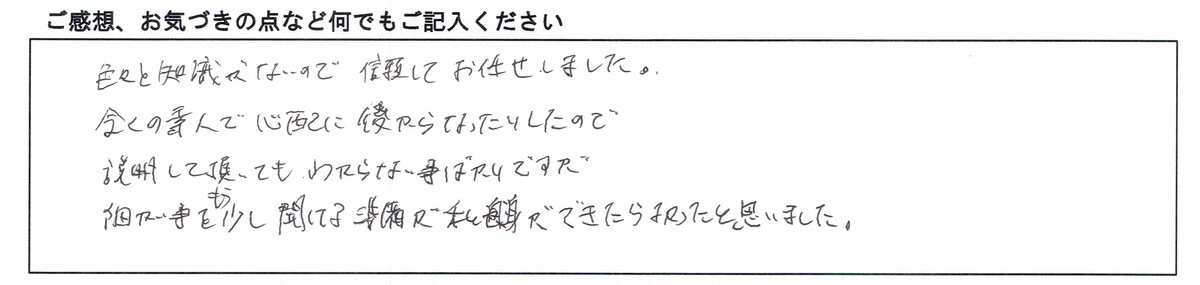 ご感想、お気づきの点など何でもご記入ください
色々と知識がないので 信頼して お任せしました。
全くの素人で 心配に 後からなったりしたので
説明して頂いても わからない事ばかりですが
細かい事をもう少し 聞いてる 準備が 私自身が できたら よかったと思いました。